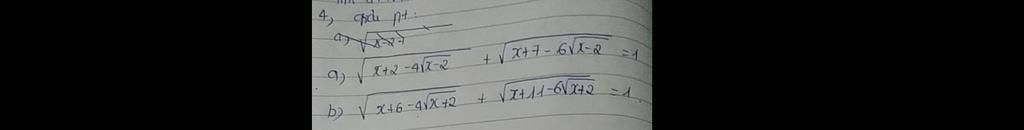 4, giải pt:
a) √(x+2-4√(x-2)) + √(x+7-6√(x-2)) = 1
b) √(x+6-4√(x+2)) + √(x+11-6√(x+2)) = 1